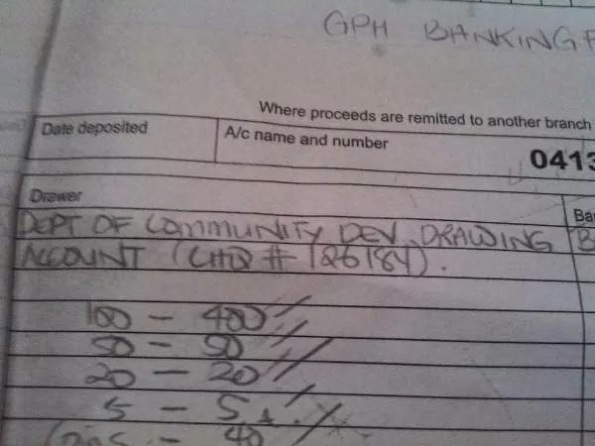 GPH BANKING
Where proceeds are remitted to another branch
Date deposited
A/c name and number
0413
Drawer
DEPT OF COMMUNITY DEV. DRAWING
ACCOUNT (CHQ # 126184).
100 - 400
50 - 50
20 - 20
5 - 5
- 40